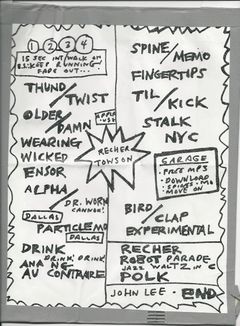 1 2 3 4
15 SEC INT/WALK ON
KEEP RUNNING
FADE OUT...
THUND/
TWIST
OLDER/
DAMN
WEARING
WICKED
ENSOR
ALPHA/
DR. WORM
DALLAS
PARTICLE MO
DALLAS
DRINK
DRINK, DRINK
ANA NG
AU CONTRAIRE
RECHER
TOWSON
SPINE/
MEMO
FINGERTIPS
TIL/
KICK
STALK
NYC
GARAGE
FREE MP3
DOWNLOAD
MOVE ON
BIRD/
CLAP
EXPERIMENTAL
RECHER
ROBOT PARADE
JAZZ WALTZ IN C
POLK
JOHN LEE - END